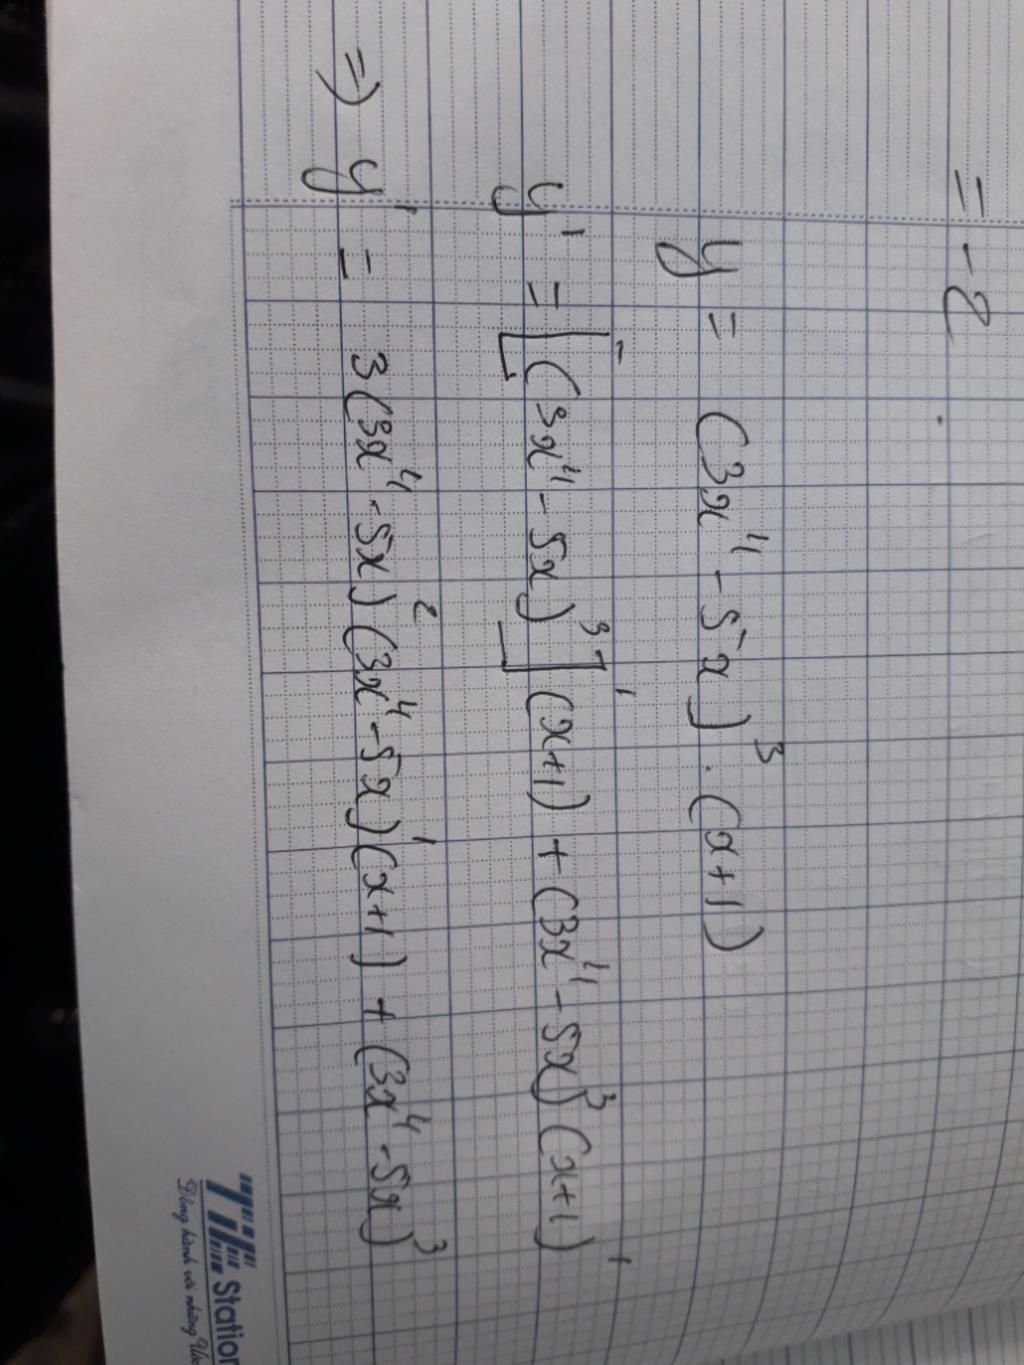 = -2
y = (3x⁴ - 5x)³ . (x+1)
y' = [(3x⁴ - 5x)³]' (x+1) + (3x⁴ - 5x)³ (x+1)'
=> y' = 3(3x⁴ - 5x)² (3x⁴ - 5x)' (x+1) + (3x⁴ - 5x)³
Station
Đồng hành với những